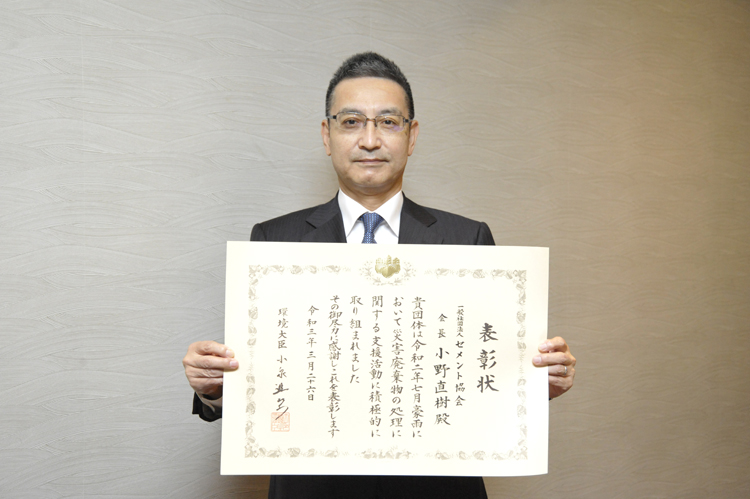 表彰状
一般社団法人セメント協会
会長 小野直樹殿
貴団体は令和二年七月豪雨に
おいて災害廃棄物の処理に
関する支援活動に積極的に
取り組まれました
その御尽力に感謝しこれを表彰します
令和三年三月二十六日
環境大臣 小泉進次郎